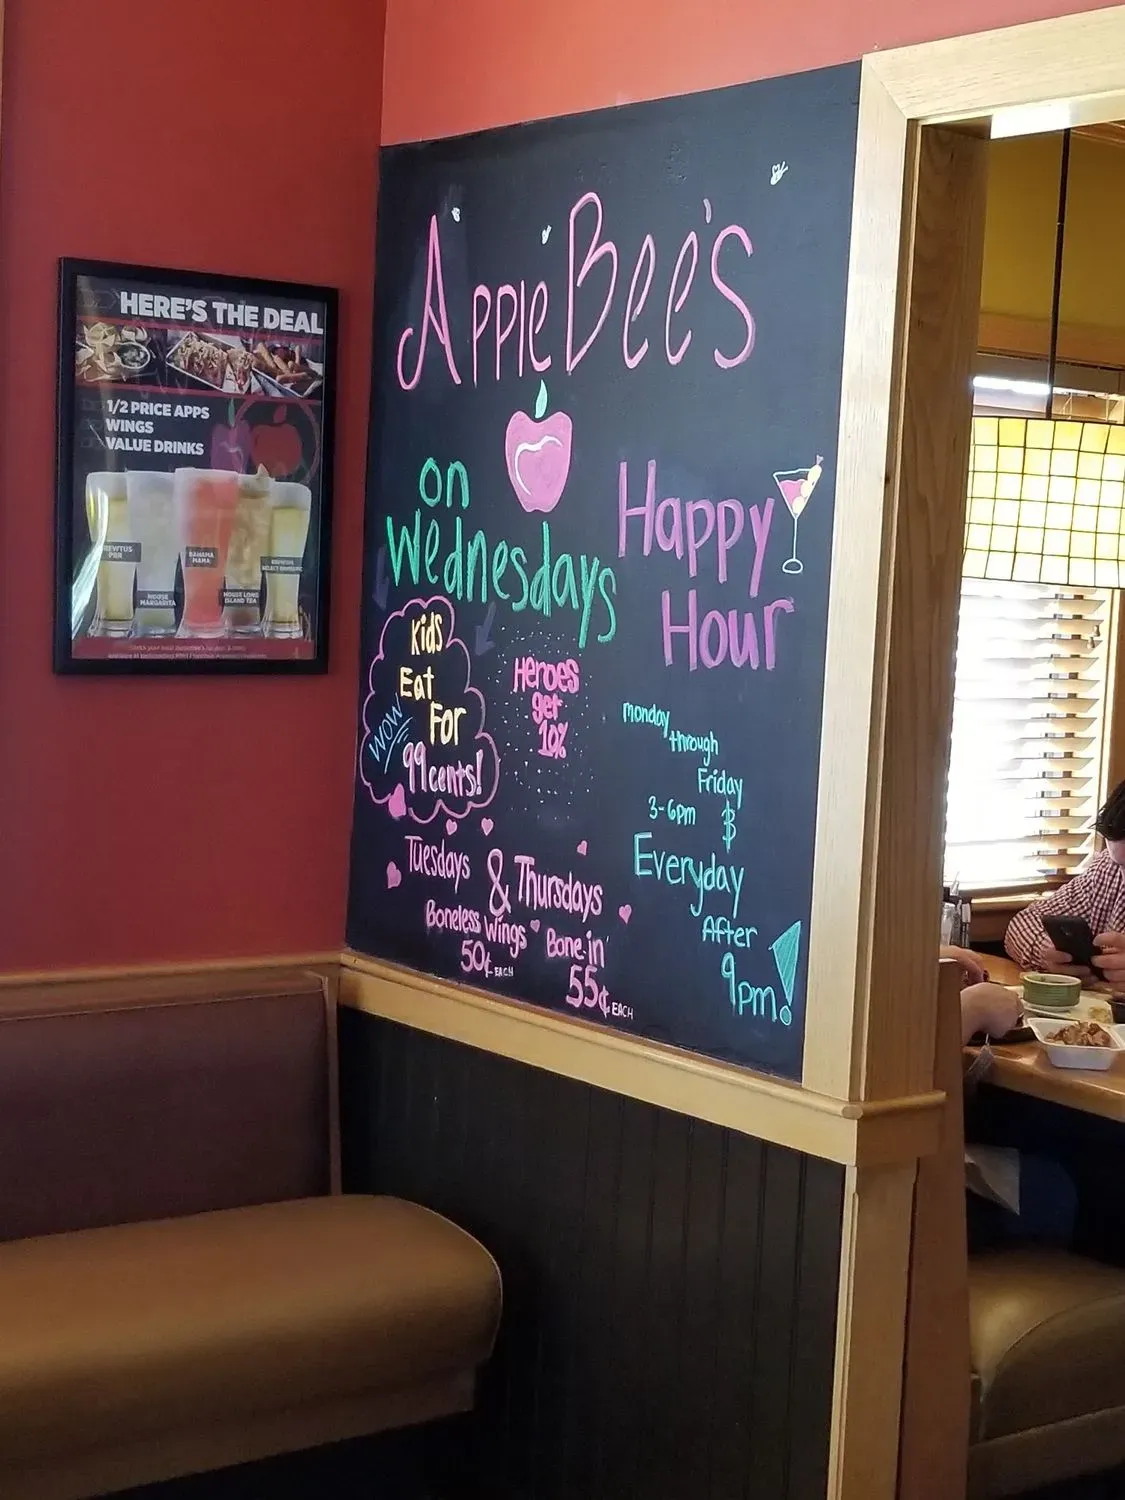 HERE'S THE DEAL
1/2 PRICE APPS
WINGS
VALUE DRINKS
BAHAMA
MAMA
HOUSE
MARGARITA
HOUSE LONG
ISLAND TEA
AppleBee's
on
Wednesdays
Kids
Eat
For
99 cents!
WOW
Heroes
get
10%
Tuesdays
& Thursdays
Boneless Wings
50¢ EACH
Bone-in
55¢ EACH
Happy
Hour
monday
through
Friday
3-6pm
&
Everyday
After
9pm!